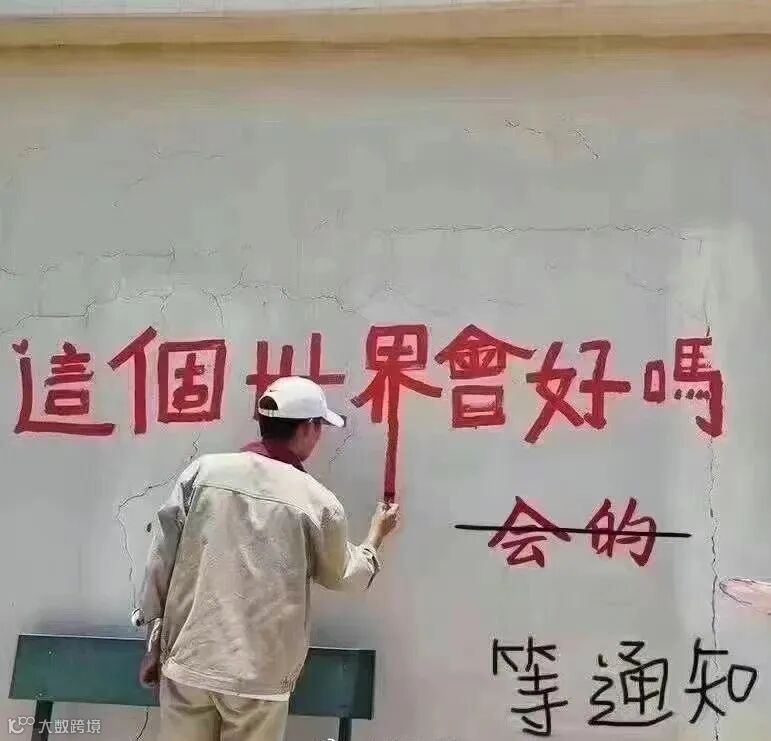 這個世界會好嗎
会的
等通知
大数跨境